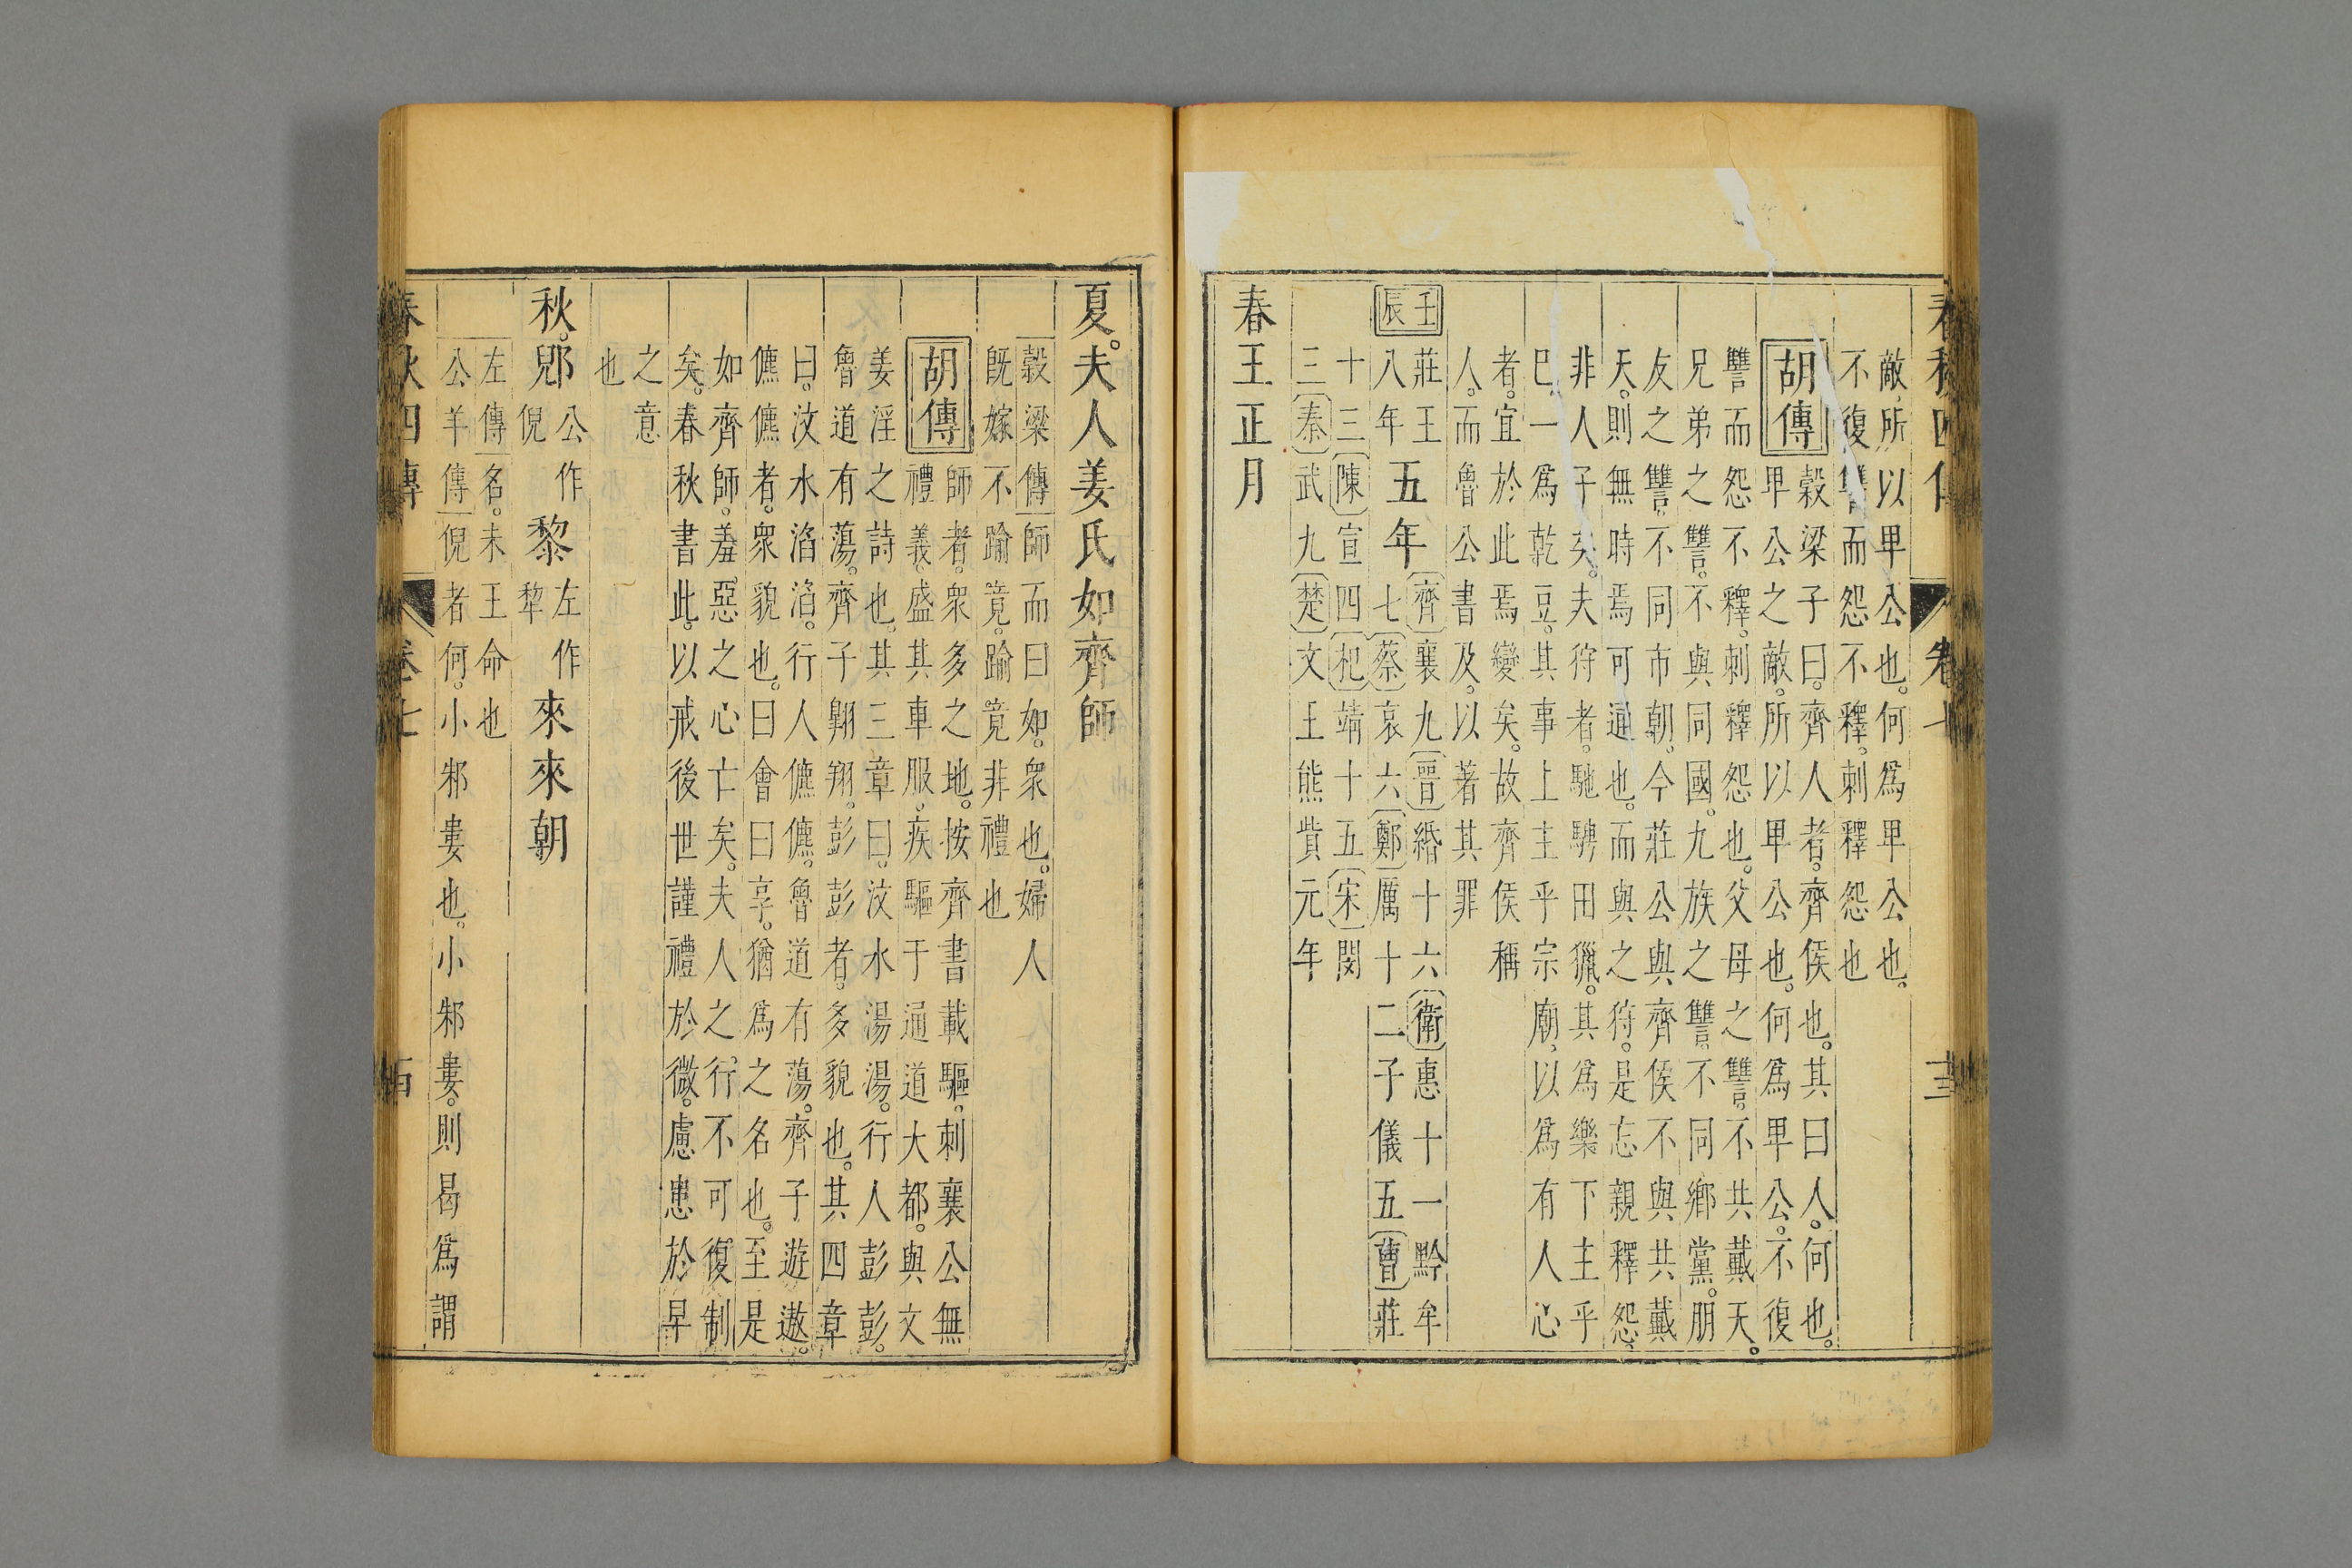 春秋四傳 卷七 十三
敵所以卑公也。何爲卑公也。
不復讐而怨不釋刺釋怨也
胡傳
穀梁子曰。齊人者。齊侯也。其曰人。何也。
卑公之敵。所以卑公也。何爲卑公。不復
讐而怨不釋。刺釋怨也。父母之讐。不共戴天。
兄弟之讐。不與同國。九族之讐。不同鄉黨。朋
友之讐。不同市朝。今莊公與齊侯不與共戴
天。則無時焉可通也。而與之狩。是忘親釋怨、
非人子矣。夫狩者。馳騁田獵。其爲樂下主乎
已。一爲乾豆。其事上主乎宗廟、以爲有人心
者。宜於此焉變矣。故齊侯稱
人。而魯公書及、以著其罪
壬辰
莊王八年
五年
齊襄九晉緡十六衛惠十一黔牟
七蔡哀六鄭厲十二子儀五曹莊
十三陳宣四杞靖十五宋閔
三秦武九楚文王熊貲元年
春王正月
夏。夫人姜氏如齊師
穀梁傳師而曰如。衆也。婦人
旣嫁不踰竟。踰竟非禮也
胡傳
師者。衆多之地。按齊書載驅。刺襄公無
禮義。盛其車服、疾驅于通道大都。與文
姜淫之詩也。其三章曰。汶水湯湯。行人彭彭。
魯道有蕩。齊子翺翔。彭彭者。多貌也。其四章
曰。汶水滔滔。行人儦儦。魯道有蕩。齊子遊遨。
儦儦者。衆貌也。曰會曰享。猶爲之名也。至是
如齊師。羞惡之心亡矣。夫人之行。不可復制
矣。春秋書此。以戒後世謹禮於微。慮患於早
之意
也
秋。郳公作倪黎左作犂來來朝
左傳名。未王命也
公羊傳倪者何。小邾婁也。小邾婁。則曷爲謂
春秋四傳 卷七 十四